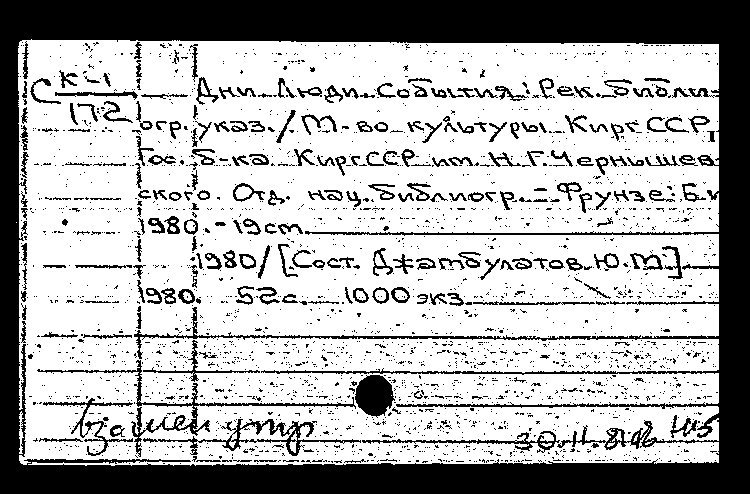 С К-1
172
Дни. Люди. События: Рек. библи-
огр. указ. / М-во культуры КиргССР,
Гос. б-ка КиргССР им. Н.Г.Чернышев-
ского. Отд. нац. библиогр. - Фрунзе: Б.и
1980. - 19 cm.
1980 / [Сост. Джамбулатов Ю.М.]
1980. 52 с. 1000 экз.
взамен утр.
30.11.81